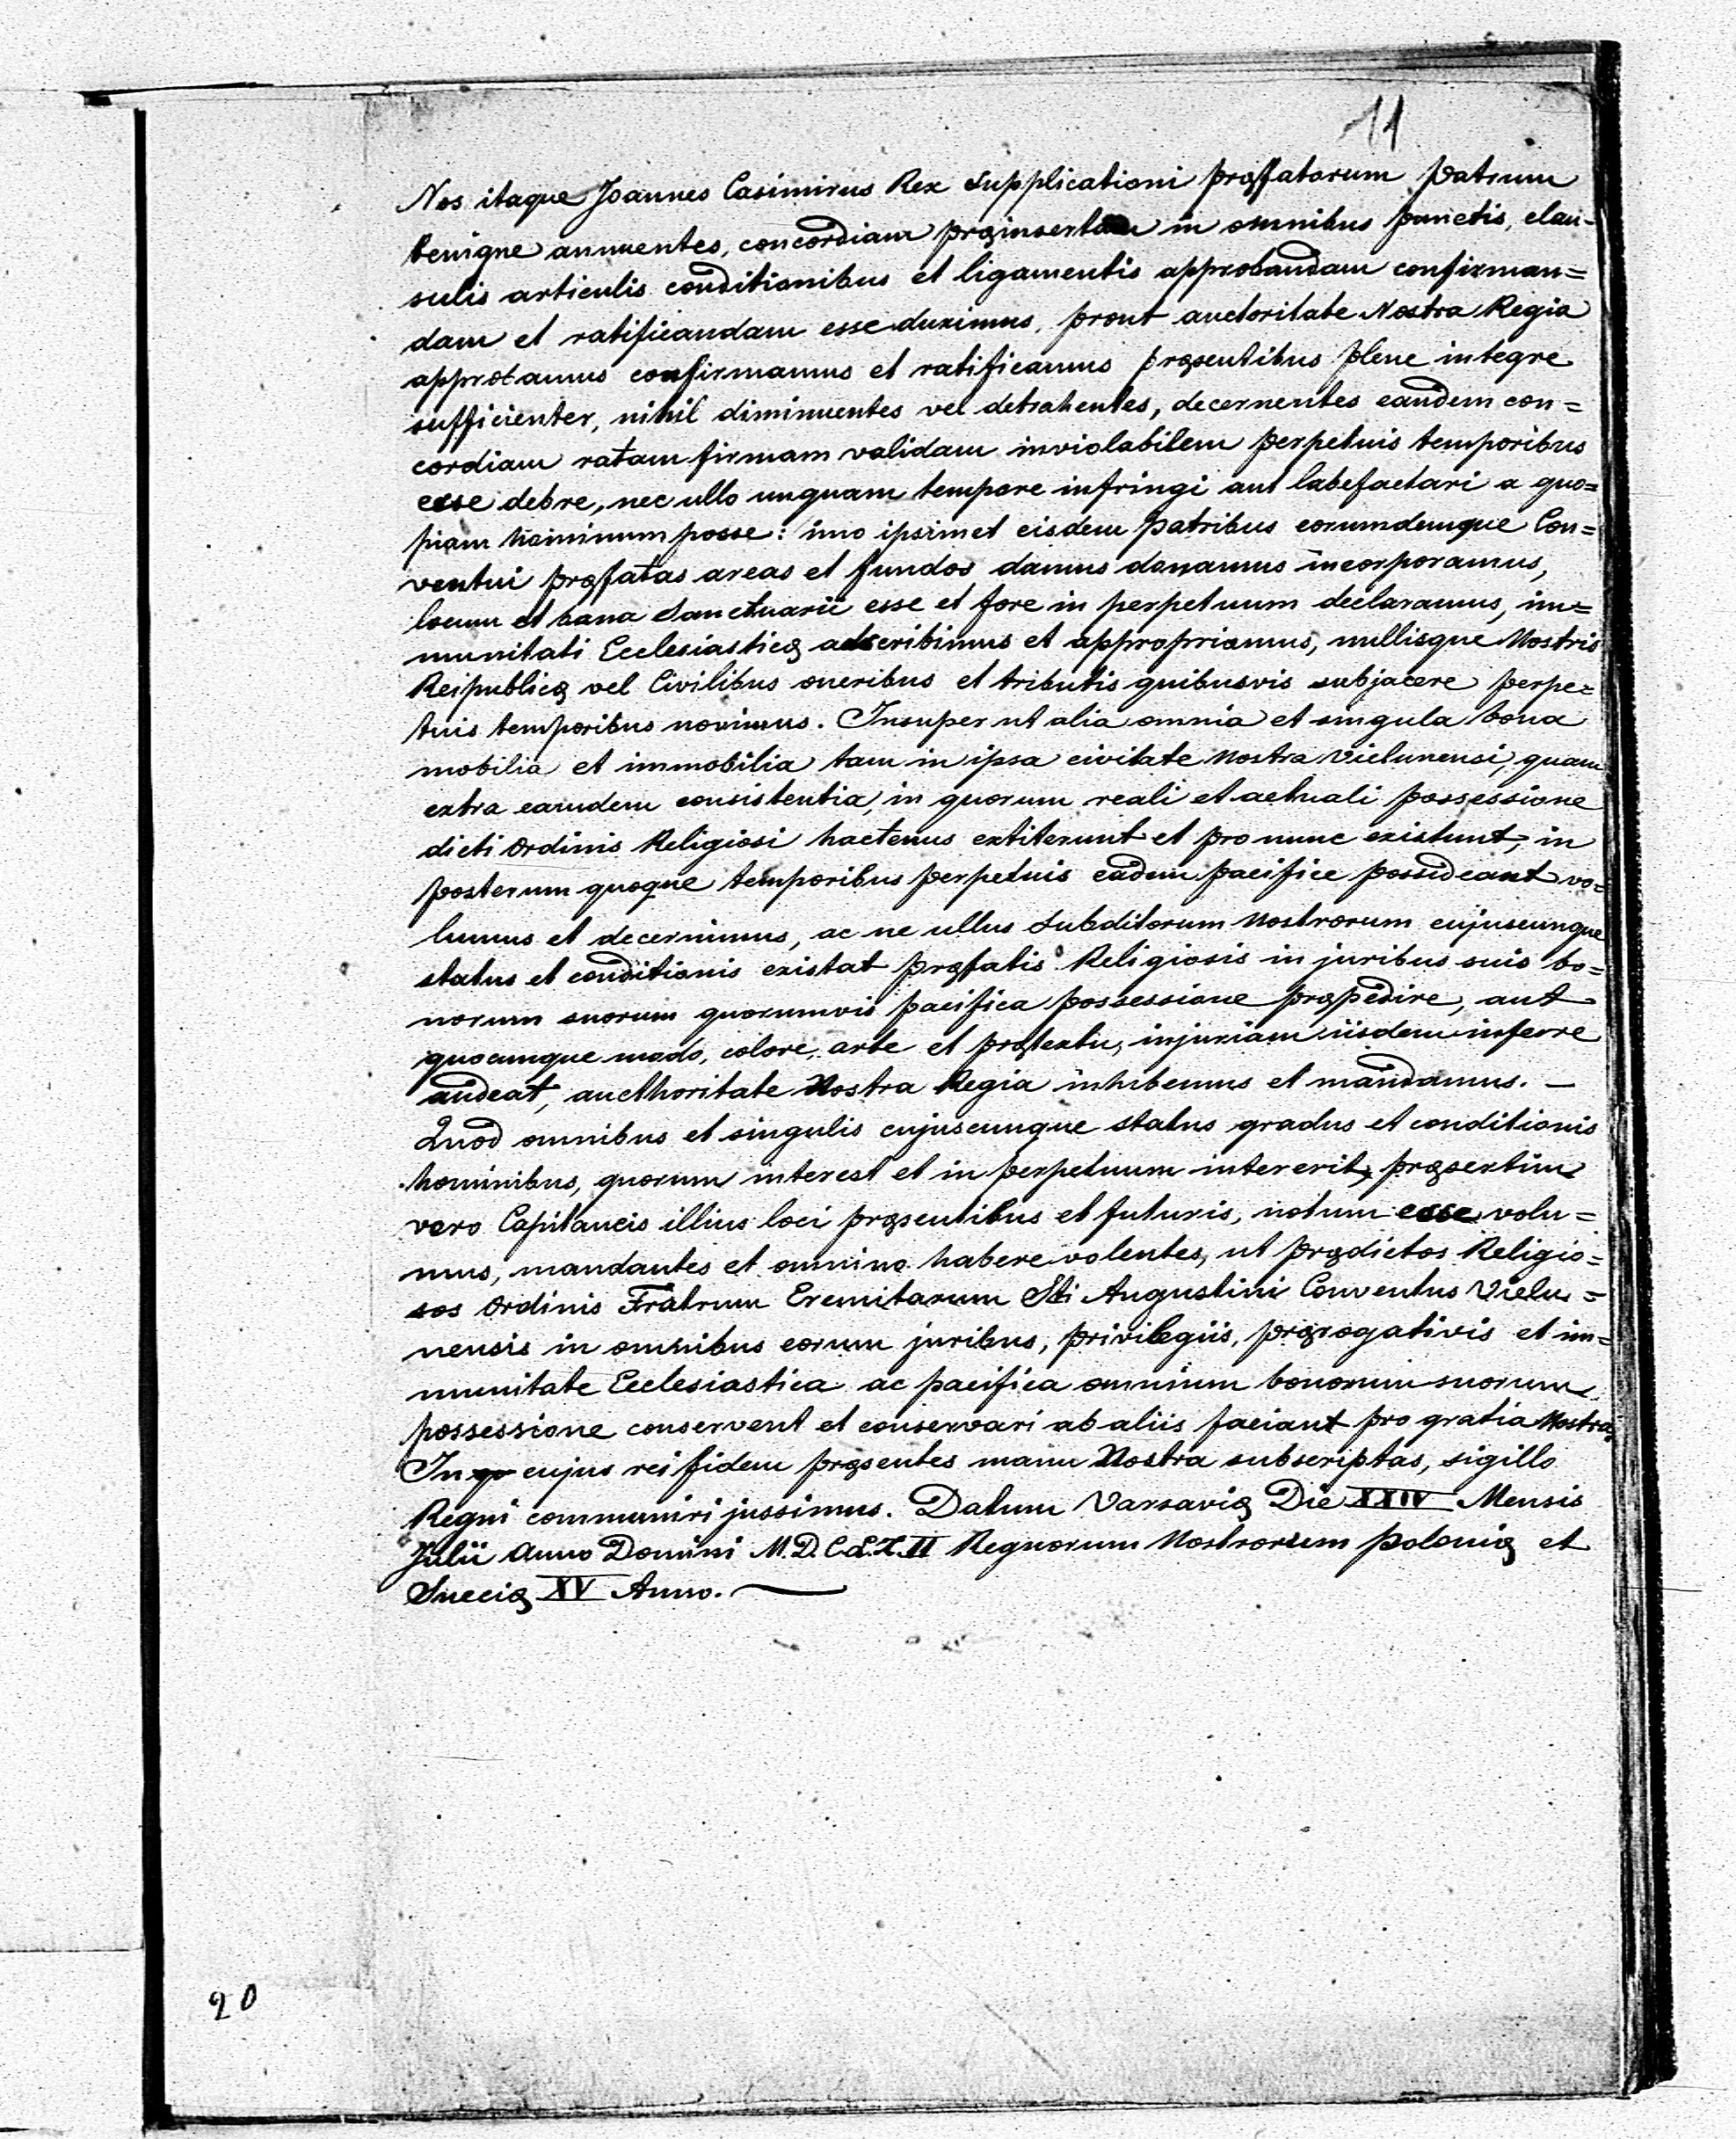 11
Nos itaque Joannes Casimirus Rex Supplicationi præfatorum Patrum
benigne annuentes, concordiam præinsertam in omnibus punctis, clau-
sulis articulis conditionibus et ligamentis approbandam confirman=
dam et ratificandam esse duximus, prout auctoritate Nostra Regia
approbamus confirmamus et ratificamus præsentibus plene integre
sufficienter, nihil diminuentes vel detrahentes, decernentes eandem con=
cordiam ratam firmam validam inviolabilem perpetuis temporibus
esse debre, nec ullo unquam tempore infringi aut labefactari a quo=
piam hominum posse: imo ipsimet eisdem Patribus eorumdemque Con=
ventui præfatas areas et fundos damus donamus incorporamus,
locum et bona Sanctuarii esse et fore in perpetuum declaramus, im=
munitati Ecclesiasticæ adscribimus et appropriamus, nullisque Nostris
Reipublicæ vel Civilibus oneribus et tributis quibusvis subjacere perpe=
tuis temporibus novimus. Insuper ut alia omnia et singula bona
mobilia et immobilia tam in ipsa civitate Nostra Vielunensi, quam
extra eamdem consistentia, in quorum reali et actuali possessione
dicti Ordinis Religiosi hactenus extiterunt et pro nunc existunt, in
posterum quoque temporibus perpetuis eadem pacifice possideant vo=
lumus et decernimus, ac ne ullus Subditorum Nostrorum cujuscunque
status et conditionis existat præfatis Religiosis in juribus suis bo=
norum suorum quorumvis pacifica possessione præpedire, aut
quocunque modo, colore, arte et prætextu, injuriam iisdem inferre
audeat, aucthoritate Nostra Regia inhibemus et mandamus. —
Quod omnibus et singulis cujuscunque status gradus et conditionis
hominibus, quorum interest et in perpetuum intererit, præsertim
vero Capitaneis illius loci præsentibus et futuris, notum esse volu=
mus, mandantes et omnino habere volentes, ut prædictos Religio=
sos Ordinis Fratrum Eremitarum Sti Augustini Conventus Vielu=
nensis in omnibus eorum juribus, privilegiis, prærogativis et im=
munitate Ecclesiastica ac pacifica omnium bonorum suorum
possessione conservent et conservari ab aliis faciant pro gratia Nostra.
In cujus rei fidem præsentes manu Nostra subscriptas, sigillo
Regni communiri jussimus. Datum Varsaviæ Die XXIV Mensis
Julii Anno Domini M.D.C.L.X.II Regnorum Nostrorum Poloniæ et
Sueciæ XV Anno. —
20